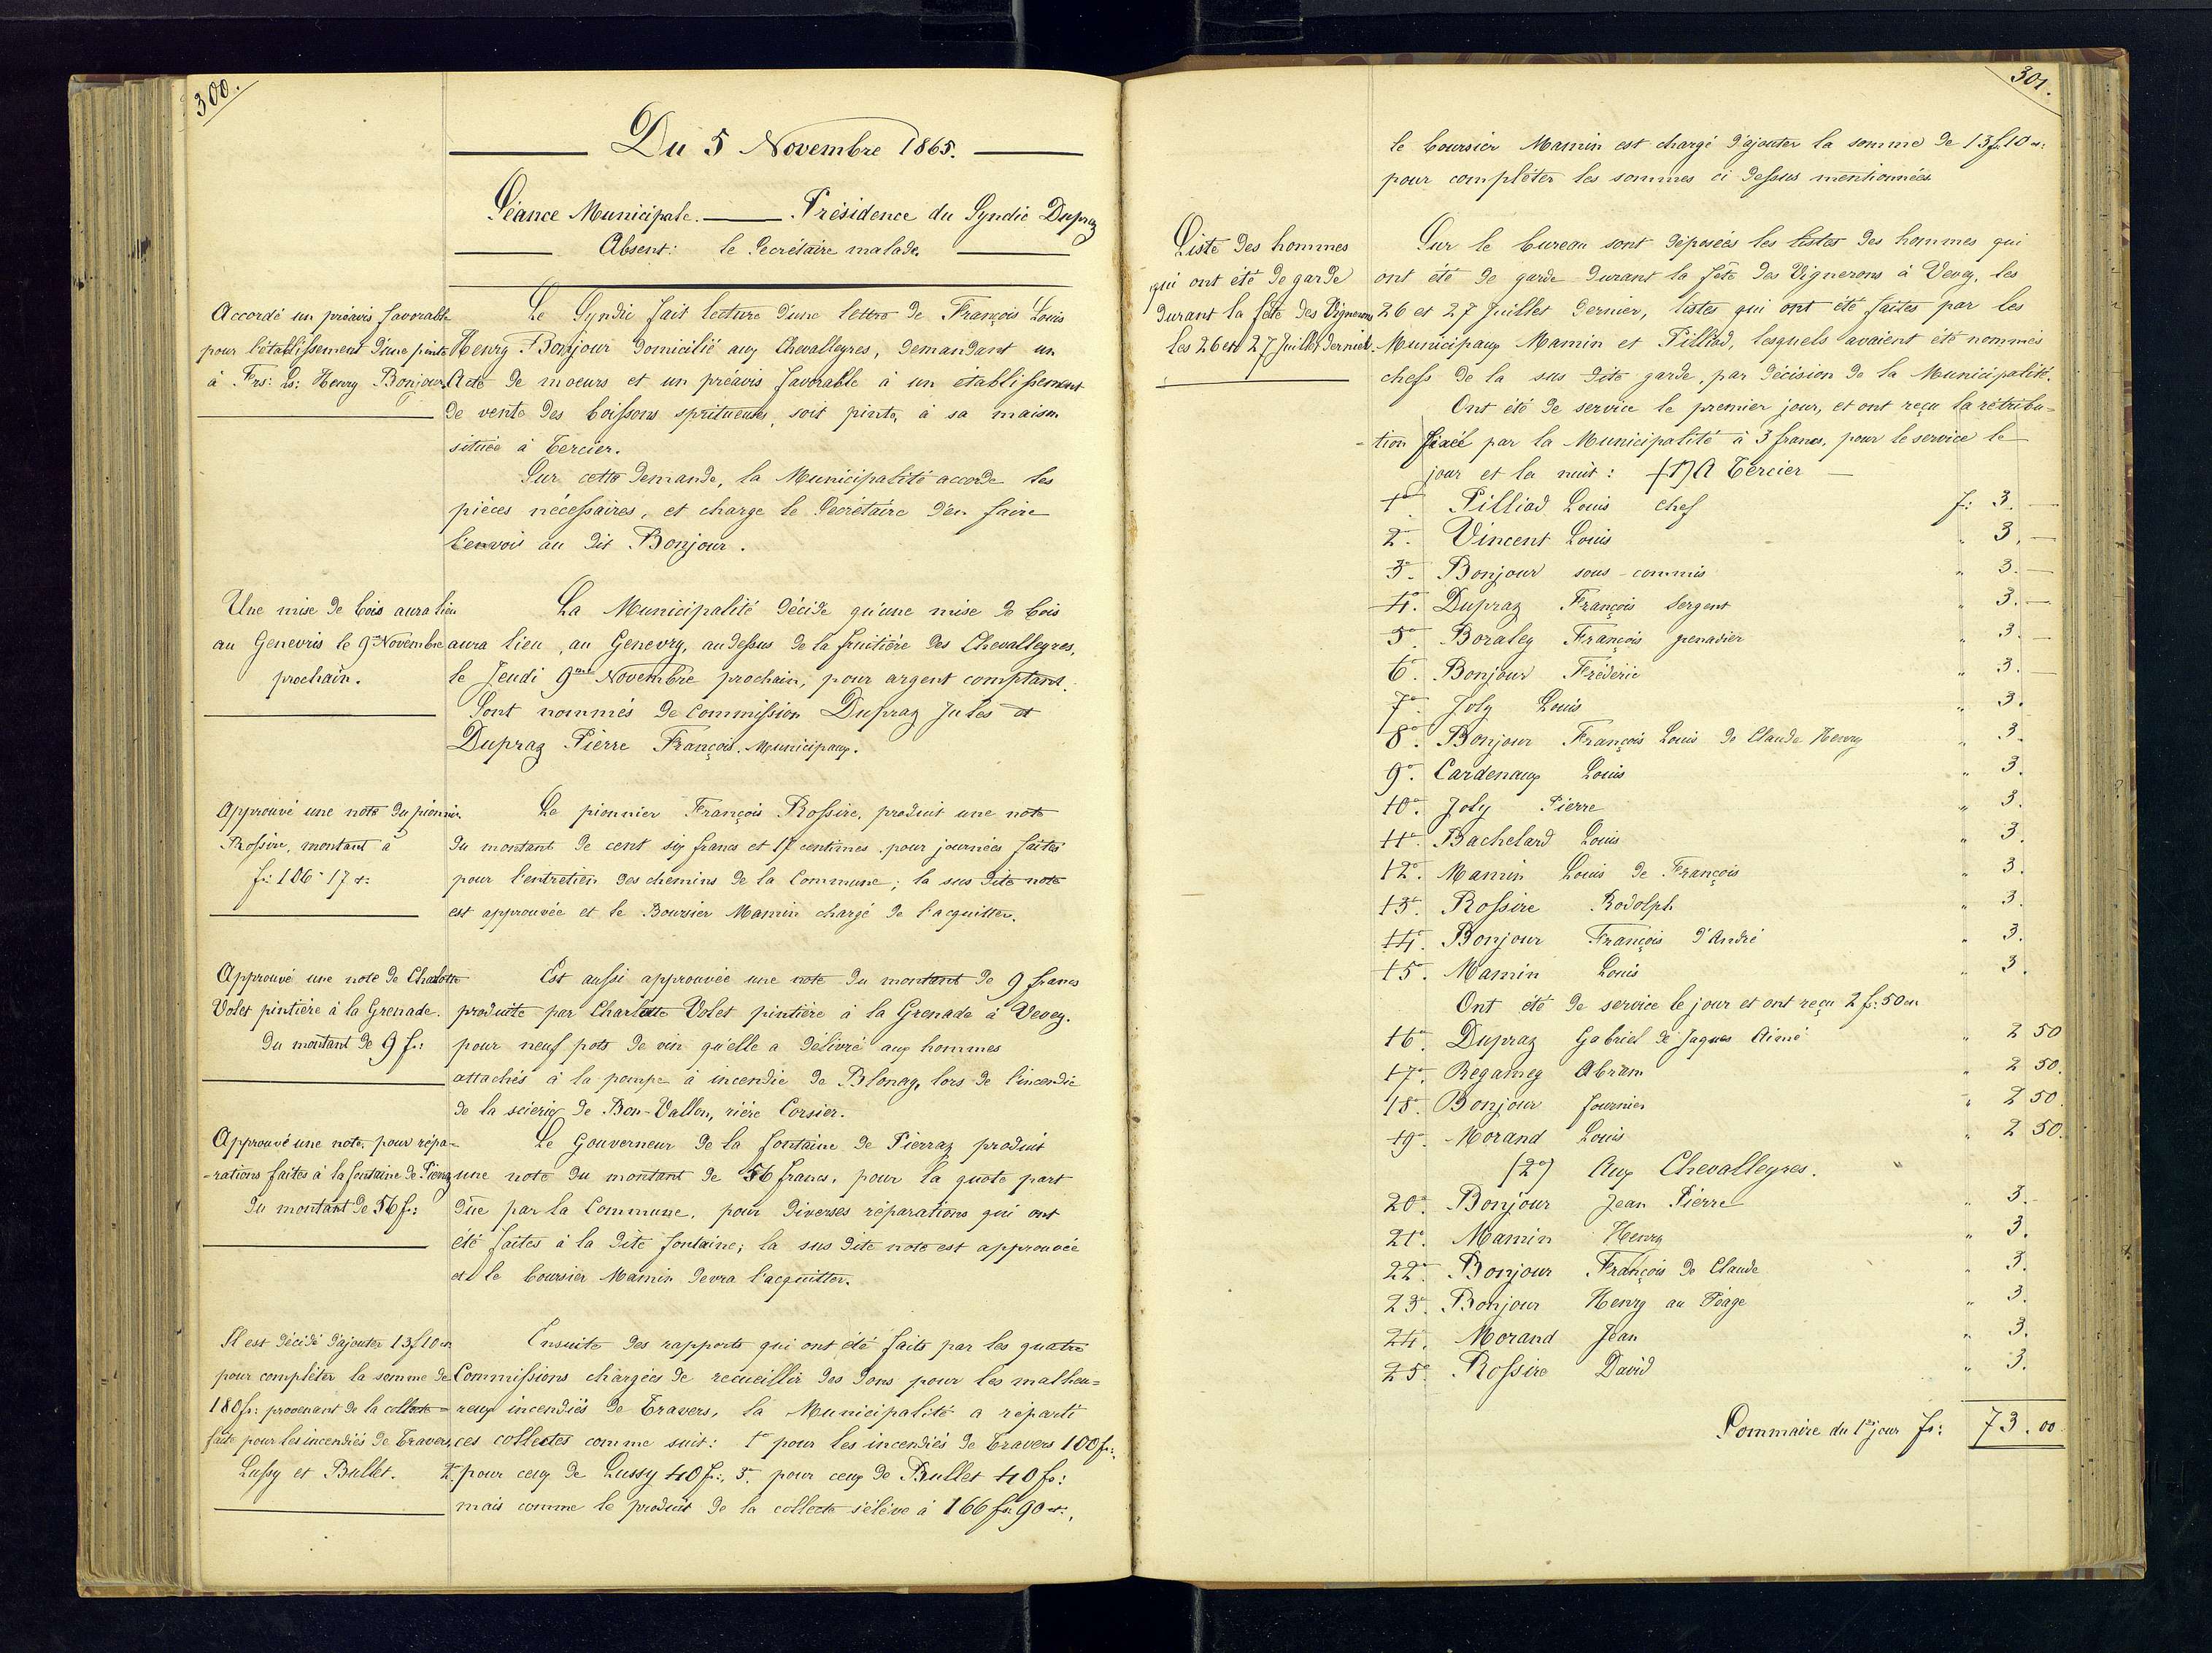 300.
Du 5 Novembre 1865.
Séance Municipale. Présidence du Syndic Dupraz
Absent: le Secrétaire malade.
Accordé un préavis favorable
pour l'établissement d'une pinte
à Frs: Ls: Henry Bonjour.
Le Syndic fait lecture d'une lettre de François Louis
Henry Bonjour domicilié aux Chevalleyres, demandant un
Acte de moeurs et un préavis favorable à un établissement
de vente des boissons spritueuses, soit pinte, à sa maison
située à Tercier.
Sur cette demande, la Municipalité accorde les
pièces nécessaires, et charge le Secrétaire d'en faire
l'envois au dit Bonjour.
Une mise de bois aura lieu
au Genevris le 9me Novembre
prochain.
La Municipalité décide qu'une mise de bois
aura lieu, au Genevry, au dessus de la fruitière des Chevalleyres,
le Jeudi 9me Novembre prochain, pour argent comptant.
Sont nommés de Commission Dupraz Jules et
Dupraz Pierre François, Municipaux.
Approuvé une note du pionnier
Rossire, montant à
fr: 106" 17 ct:
Le pionnier François Rossire, produit une note
du montant de cent six francs et 17 centimes, pour journées faites
pour l'entretien des chemins de la Commune; la sus dite note
est approuvée et le Boursier Mamin chargé de l'acquitter.
Approuvé une note de Charlotte
Volet pintière à la Grenade.
du montant de 9 fr:
Est aussi approuvée une note du montant de 9 francs
produite par Charlotte Volet pintière à la Grenade à Vevey.
pour neuf pots de vin qu'elle a délivré aux hommes
attachés à la pompe à incendie de Blonay, lors de l'incendie
de la scierie de Bon-Vallon, rière Corsier.
Approuvé une note, pour répa=
=rations faites à la fontaine de Pierraz
du montant de 56 fr:
Le Gouverneur de la fontaine de Pierraz produit
une note du montant de 56 francs, pour la quote part
düe par la Commune, pour diverses réparations qui ont
été faites à la dite fontaine; la sus dite note est approuvée
et le boursier Mamin devra l'acquitter.
Il est décidé d'ajouter 13 f 10 ct
pour compléter la somme de
180 fr: provenant de la collecte =
faite pour les incendiés de Travers,
Lussy et Bullet.
Ensuite des rapports qui ont été faits par les quatre
Commissions chargées de recueillir des dons pour les malheu=
reux incendiés de Travers, la Municipalité a réparti
ces collectes comme suit: 1° pour les incendiés de Travers 100 fr:,
2° pour ceux de Lussy 40 fr:, 3° pour ceux de Bullet 40 fr:
mais comme le produit de la collecte s'élève à 166 fr 90 ct:,
301.
le boursier Mamin est chargé d'ajouter la somme de 13 f. 10 ct:
pour compléter les sommes ci dessus mentionnées
Liste des hommes
qui ont été de garde
durant la fête des Vignerons
les 26 et 27 Juillet dernier.
Sur le bureau sont déposées les listes des hommes qui
ont été de garde durant la fête des Vignerons à Vevey, les
26 et 27 Juillet dernier, listes qui ont été faites par les
Municipaux Mamin et Pilliod, lesquels avaient été nommés
chefs de la sus dite garde, par décision de la Municipalité.
Ont été de service le premier jour, et ont reçu la rétribu=
=tion fixée par la Municipalité à 3 francs, pour le service le
jour et la nuit: (1°) A Tercier
1° Pilliod Louis chef fr: 3. —
2° Vincent Louis " 3. —
3° Bonjour sous-commis " 3. —
4° Dupraz François Sergent " 3. —
5° Boraley François grenadier " 3. —
6° Bonjour Fréderic " 3. —
7° Joly Louis " 3.
8° Bonjour François Louis de Claude Henry " 3.
9° Cardenaux Louis " 3.
10° Joly Pierre " 3.
11° Bachelard Louis " 3.
12° Mamin Louis de François " 3.
13° Rossire Rodolph " 3.
14° Bonjour François d'André " 3.
15° Mamin Louis " 3.
Ont été de service le jour et ont reçu 2 fr: 50 ct
16° Dupraz Gabriel de Jaques Aimé " 2 50
17° Regamey Abram " 2 50.
18° Bonjour fournier " 2 50.
19° Morand Louis " 2 50.
(2°) Aux Chevalleyres.
20° Bonjour Jean Pierre " 3.
21° Mamin Henry " 3.
22° Bonjour François de Claude " 3.
23° Bonjour Henry au Péage " 3.
24. Morand Jean " 3.
25° Rossire David " 3.
Sommaire du 1er jour fr: 73.00